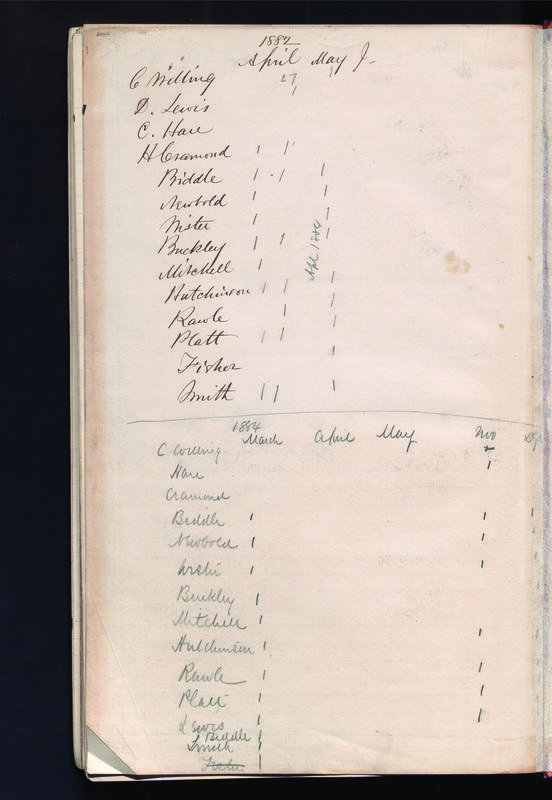 1882
April May J
27
C Willing
D. Lewis
C. Hare
H Cramond
Biddle
Newbold
Wister
Buckley
Mitchell
Hutchinson
Rawle
Platt
Fisher
Smith
Apl 1884
1884
March April May Nov
C Willing
Hare
Cramond
Biddle
Newbold
Wister
Buckley
Mitchell
Hutchinson
Rawle
Platt
Lewis
Biddle
Smith
Fisher